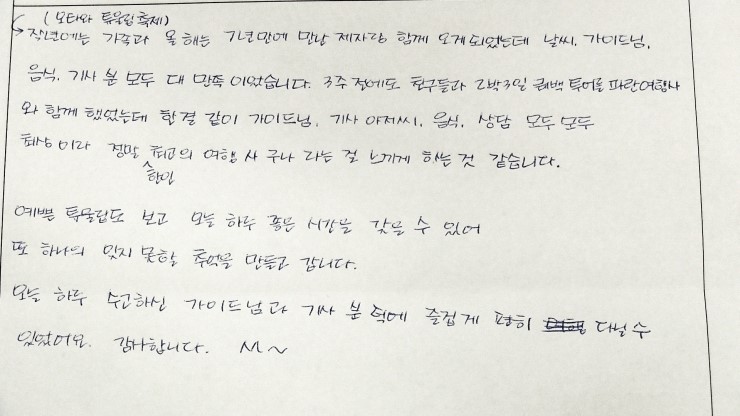 (오타와 튜울립 축제)
작년에는 가족과 올해는 7년만에 만난 제자랑 함께 오게 되었는데 날씨. 가이드님.
음식. 기사 분 모두 대 만족 이었습니다. 3주 전에도 친구들과 2박3일 퀘백 투어를 파란여행사
와 함께 했었는데 한결 같이 가이드님. 기사 아저씨. 음식. 상담 모두 모두
최상 이라 정말 최고의 여행 사 구나 라는 걸 느끼게 하는 것 같습니다.
한인
예쁜 튜울립도 보고 오늘 하루 좋은 시간을 갖을 수 있어
또 하나의 잊지 못할 추억을 만들고 갑니다.
오늘 하루 수고하신 가이드님과 기사 분 덕에 즐겁게 편히 다닐 수
있었어요. 감사합니다.